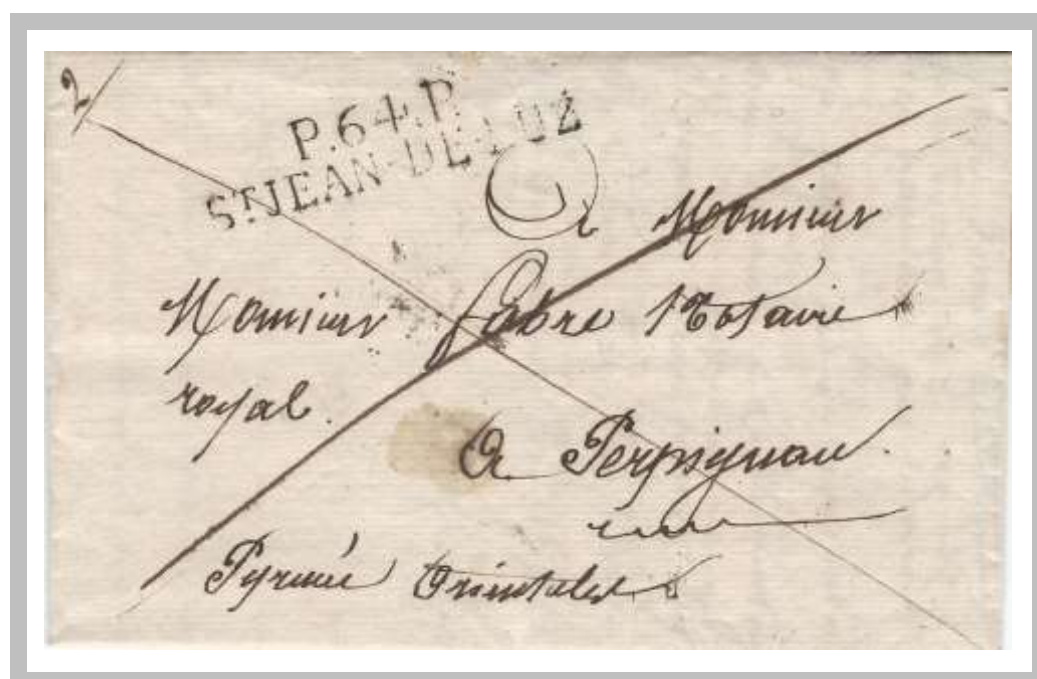 2/
P.64.P
ST JEAN-DE-LUZ
a Monsieur
Monsieur fabre Notaire
royal.
A Perpignan.
Pyrenée Orientales